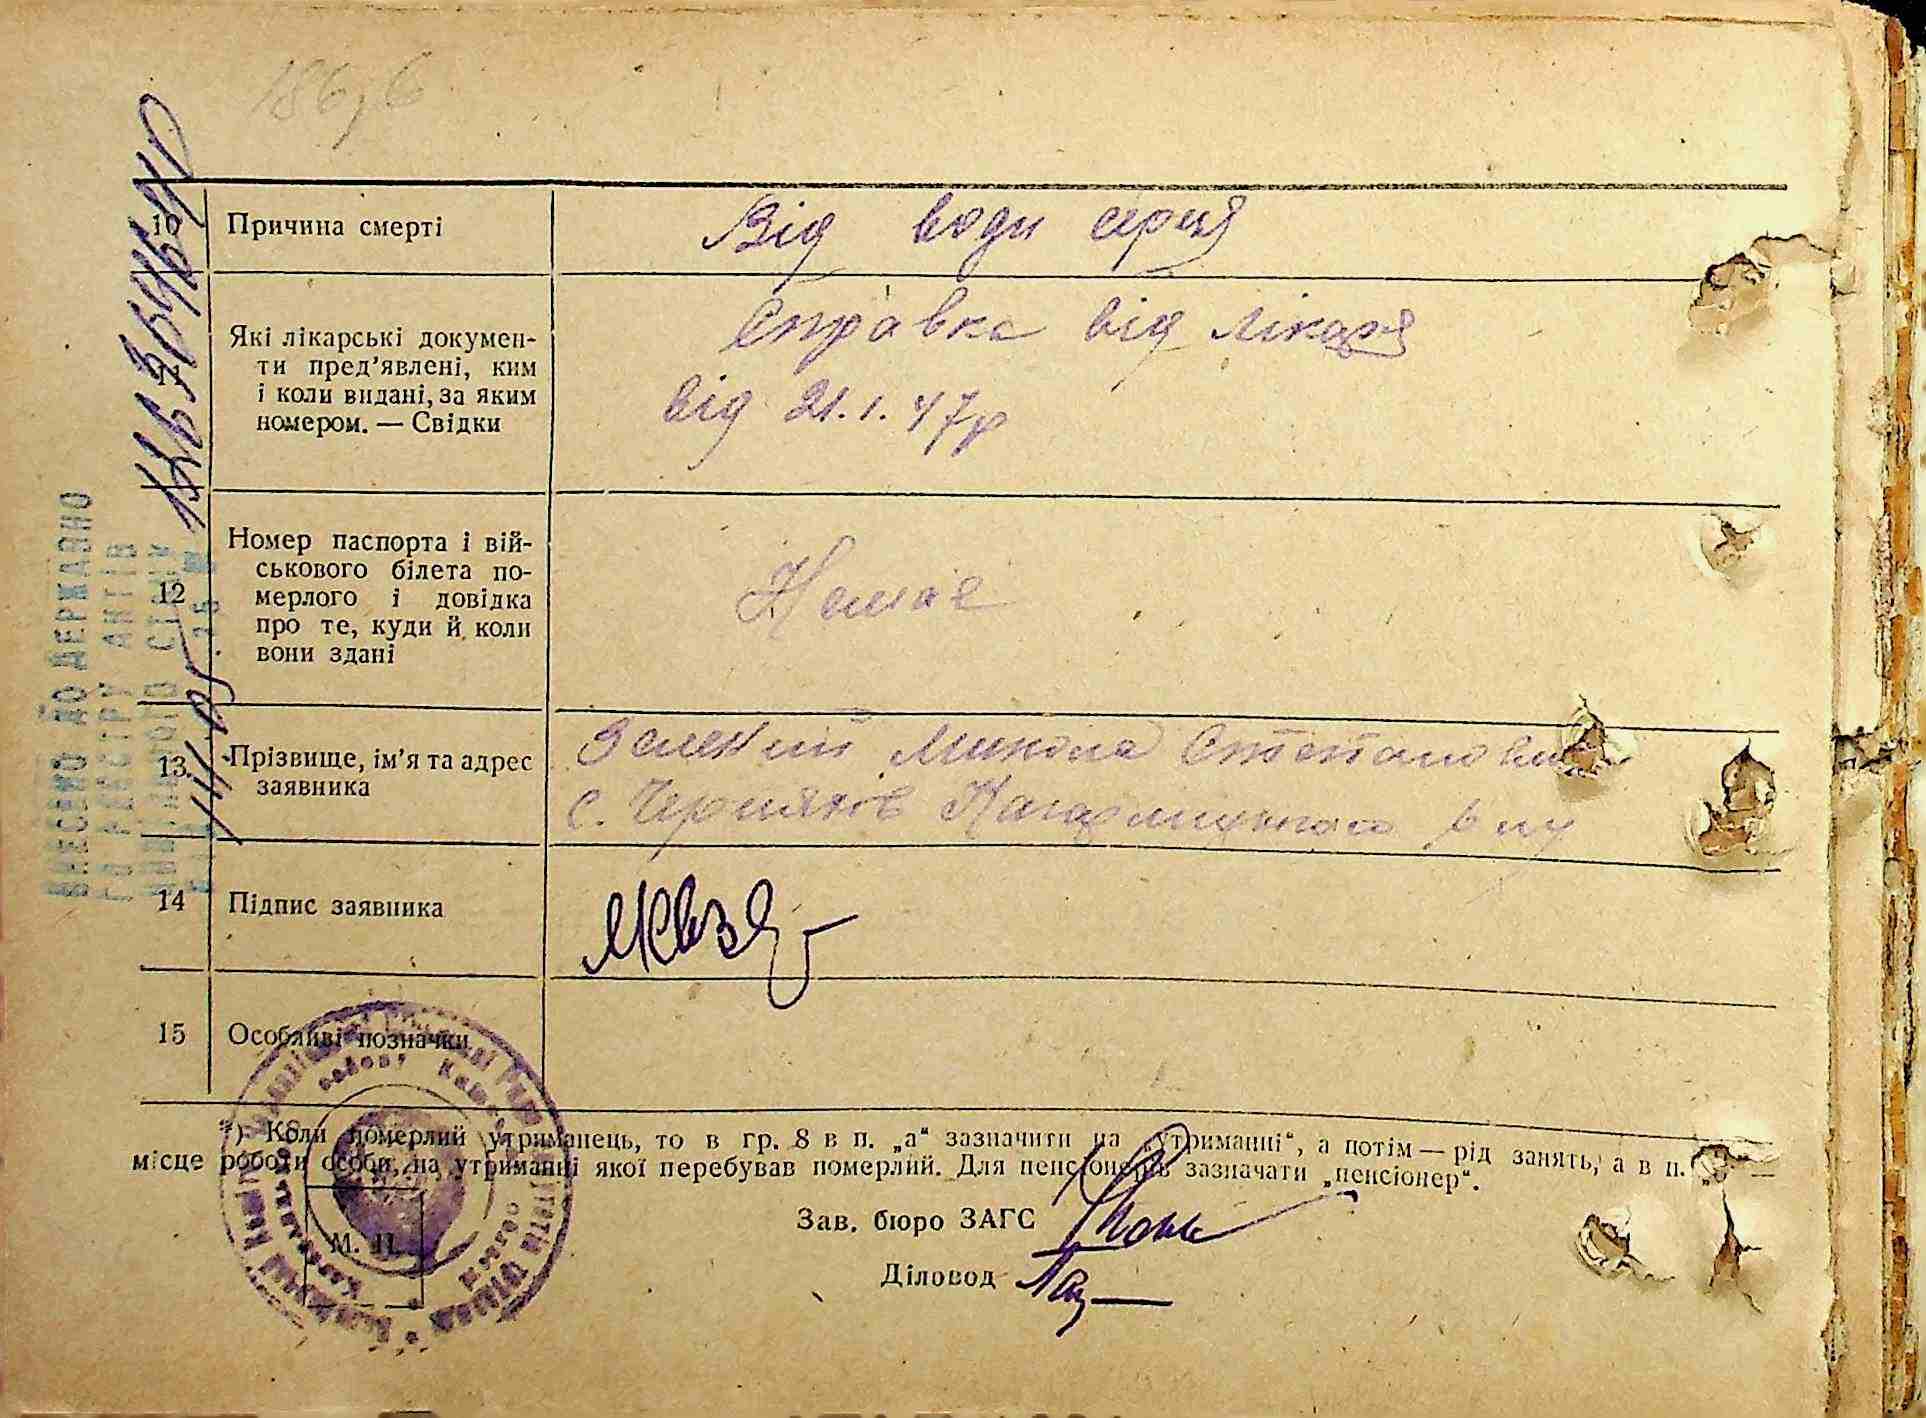 186, 6
10 Причина смерті
Від води серця
Які лікарські докумен-
ти пред’явлені, ким
і коли видані, за яким
номером. — Свідки
Справка від лікаря
від 21.1.47р
12
Номер паспорта і вій-
ськового білета по-
мерлого і довідка
про те, куди й коли
вони здані
Немає
13. Прізвище, ім’я та адрес
заявника
Микола Степанович
с. Черняхов Кагарлицького р-ну
14 Підпис заявника
15 Особливі позначки
*) Коли померлий утриманець, то в гр. 8 в п. „а“ зазначити на „утриманні“, а потім — рід занять, а в п.
місце роботи особи, на утриманні якої перебував померлий. Для пенсіонерів зазначати „пенсіонер“.
Зав. бюро ЗАГС
Діловод
М. П.
ВНЕСЕНО ДО ДЕРЖАВНО
ГО РЕЄСТРУ АКТІВ
ЦИВІЛЬНОГО СТАНУ